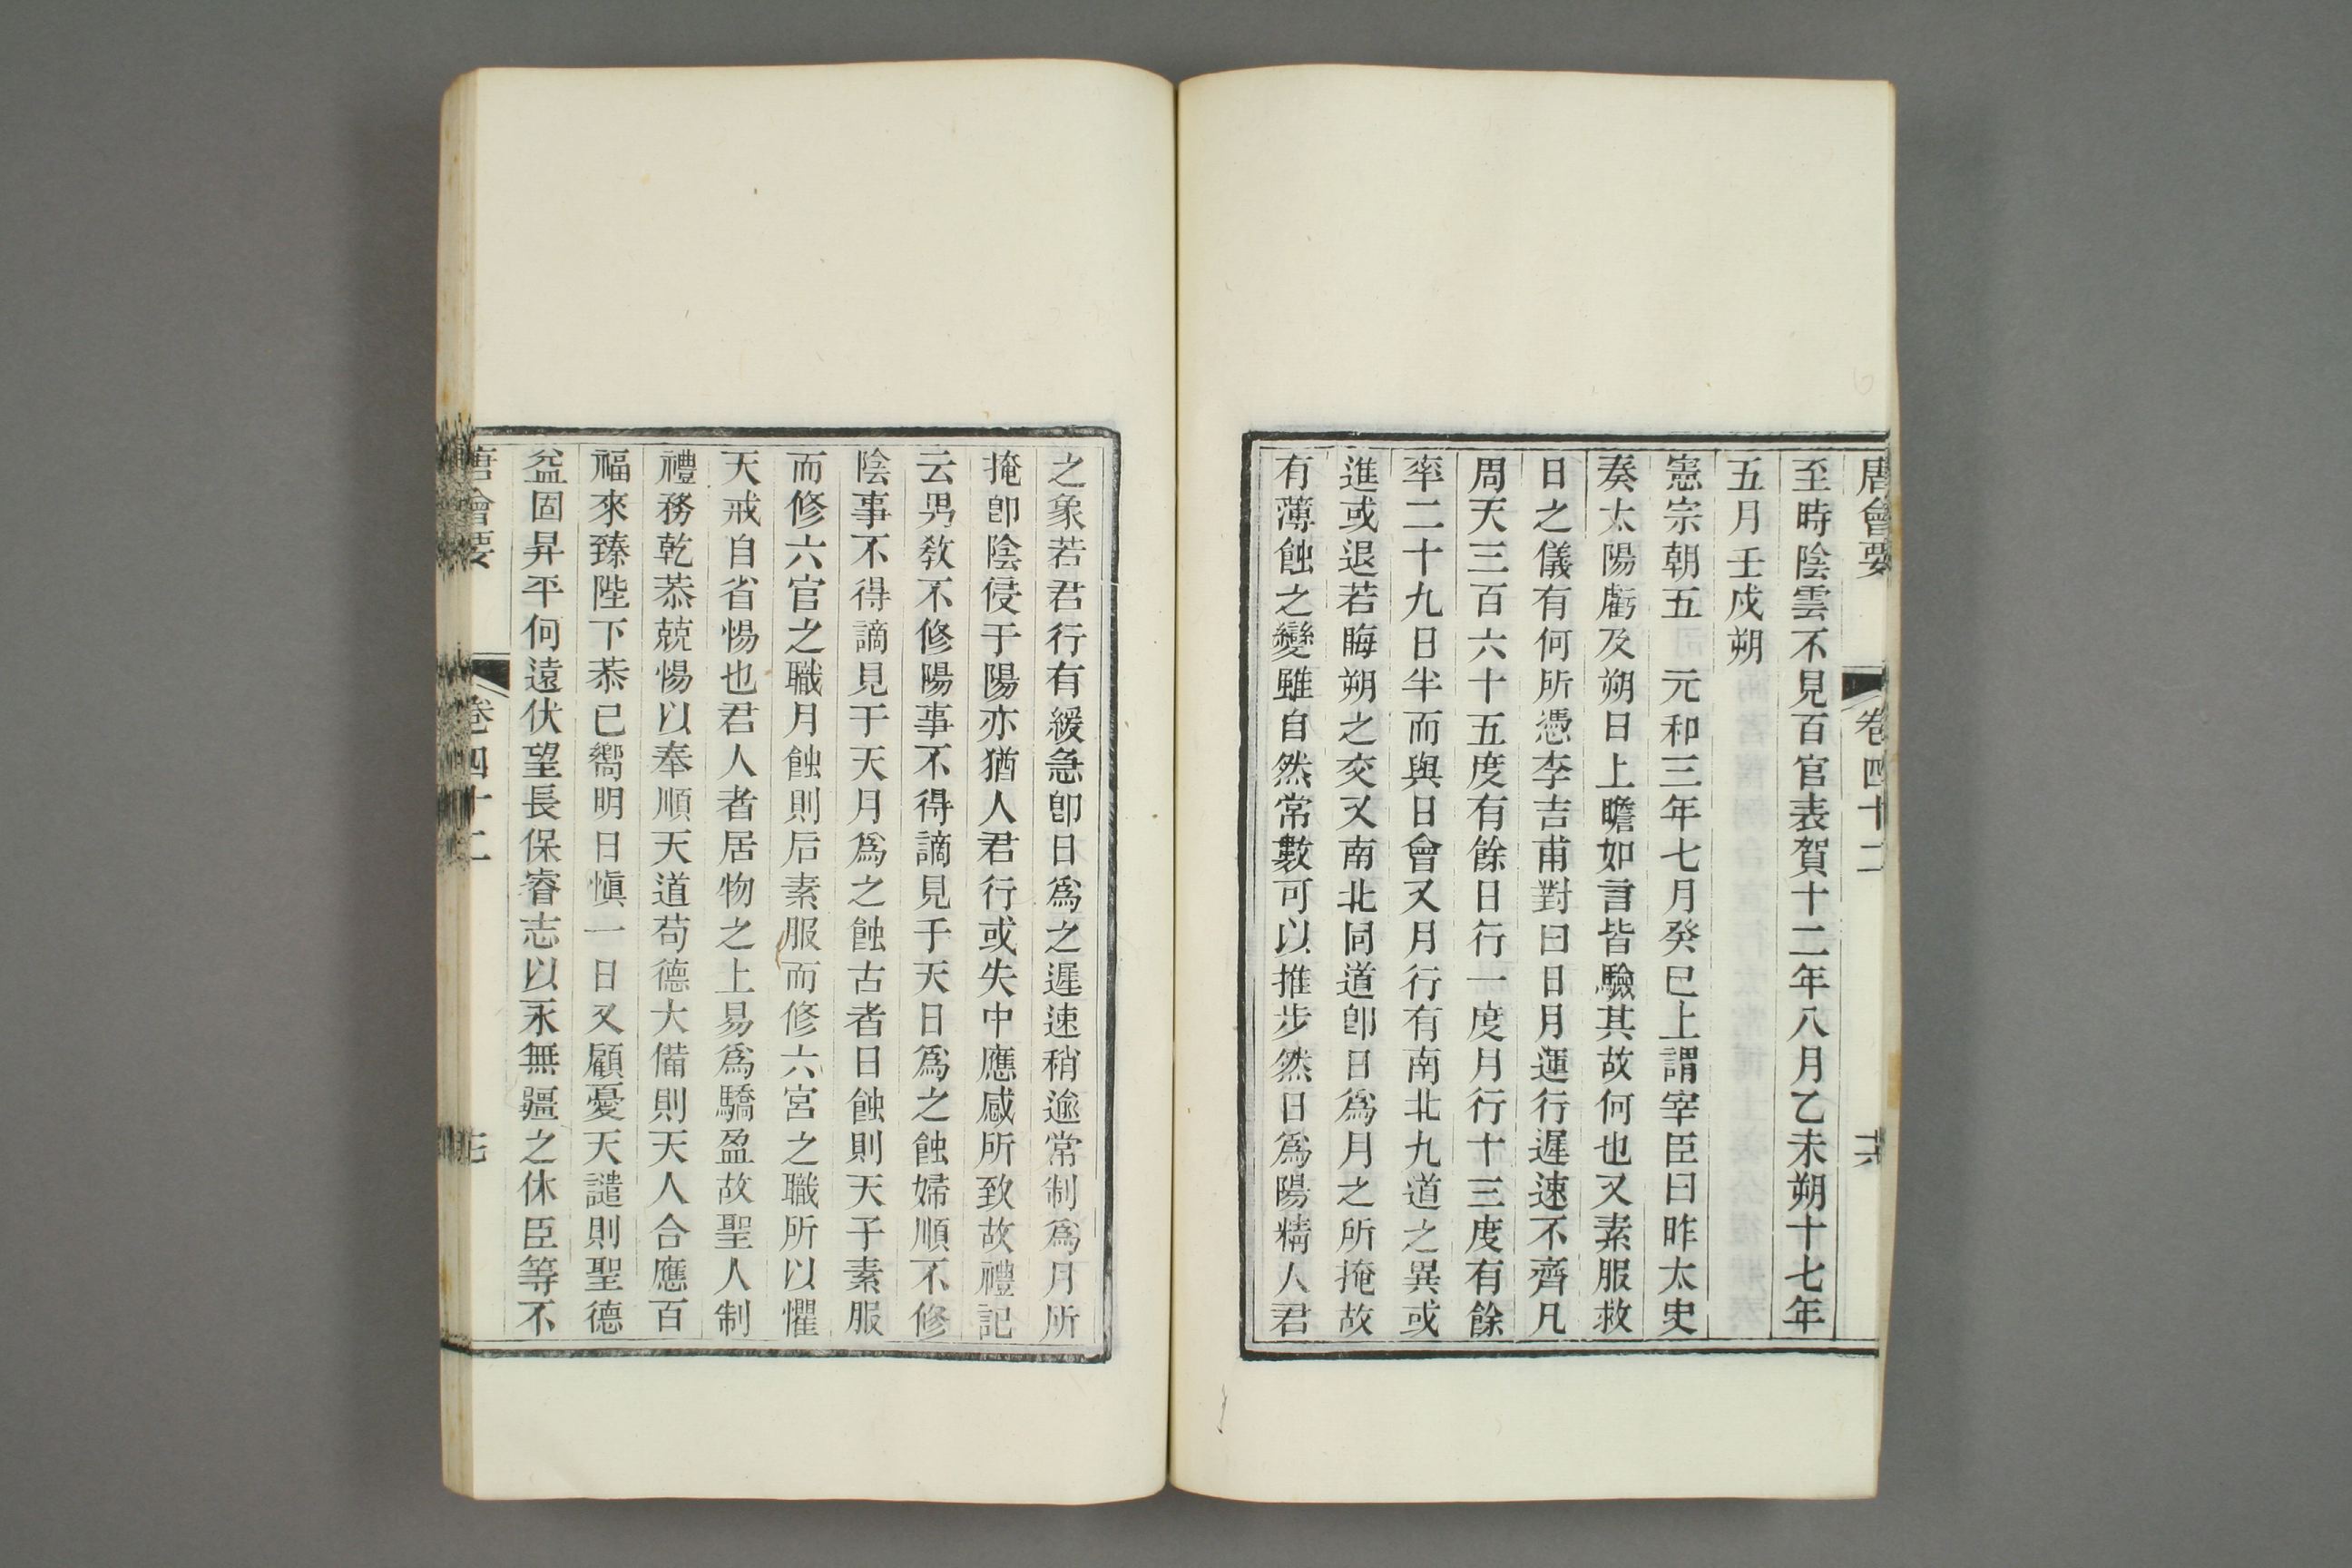 唐會要 卷四十二 十六
至時陰雲不見百官表賀十二年八月乙未朔十七年
五月壬戌朔
憲宗朝五 元和三年七月癸巳上謂宰臣曰昨太史
奏太陽虧及朔日上瞻如言皆驗其故何也又素服救
日之儀有何所憑李吉甫對曰日月運行遲速不齊凡
周天三百六十五度有餘日行一度月行十三度有餘
率二十九日半而與日會又月行有南北九道之異或
進或退若晦朔之交又南北同道卽日爲月之所掩故
有薄蝕之變雖自然常數可以推步然日爲陽精人君
之象若君行有緩急卽日爲之遲速稍逾常制爲月所
掩卽陰侵于陽亦猶人君行或失中應感所致故禮記
云男敎不修陽事不得謫見于天日爲之蝕婦順不修
陰事不得謫見于天月爲之蝕古者日蝕則天子素服
而修六官之職月蝕則后素服而修六宮之職所以懼
天戒自省惕也君人者居物之上易爲驕盈故聖人制
禮務乾恭兢惕以奉順天道苟德大備則天人合應百
福來臻陛下恭已嚮明日愼一日又顧憂天譴則聖德
益固昇平何遠伏望長保睿志以永無疆之休臣等不
唐會要 卷四十二